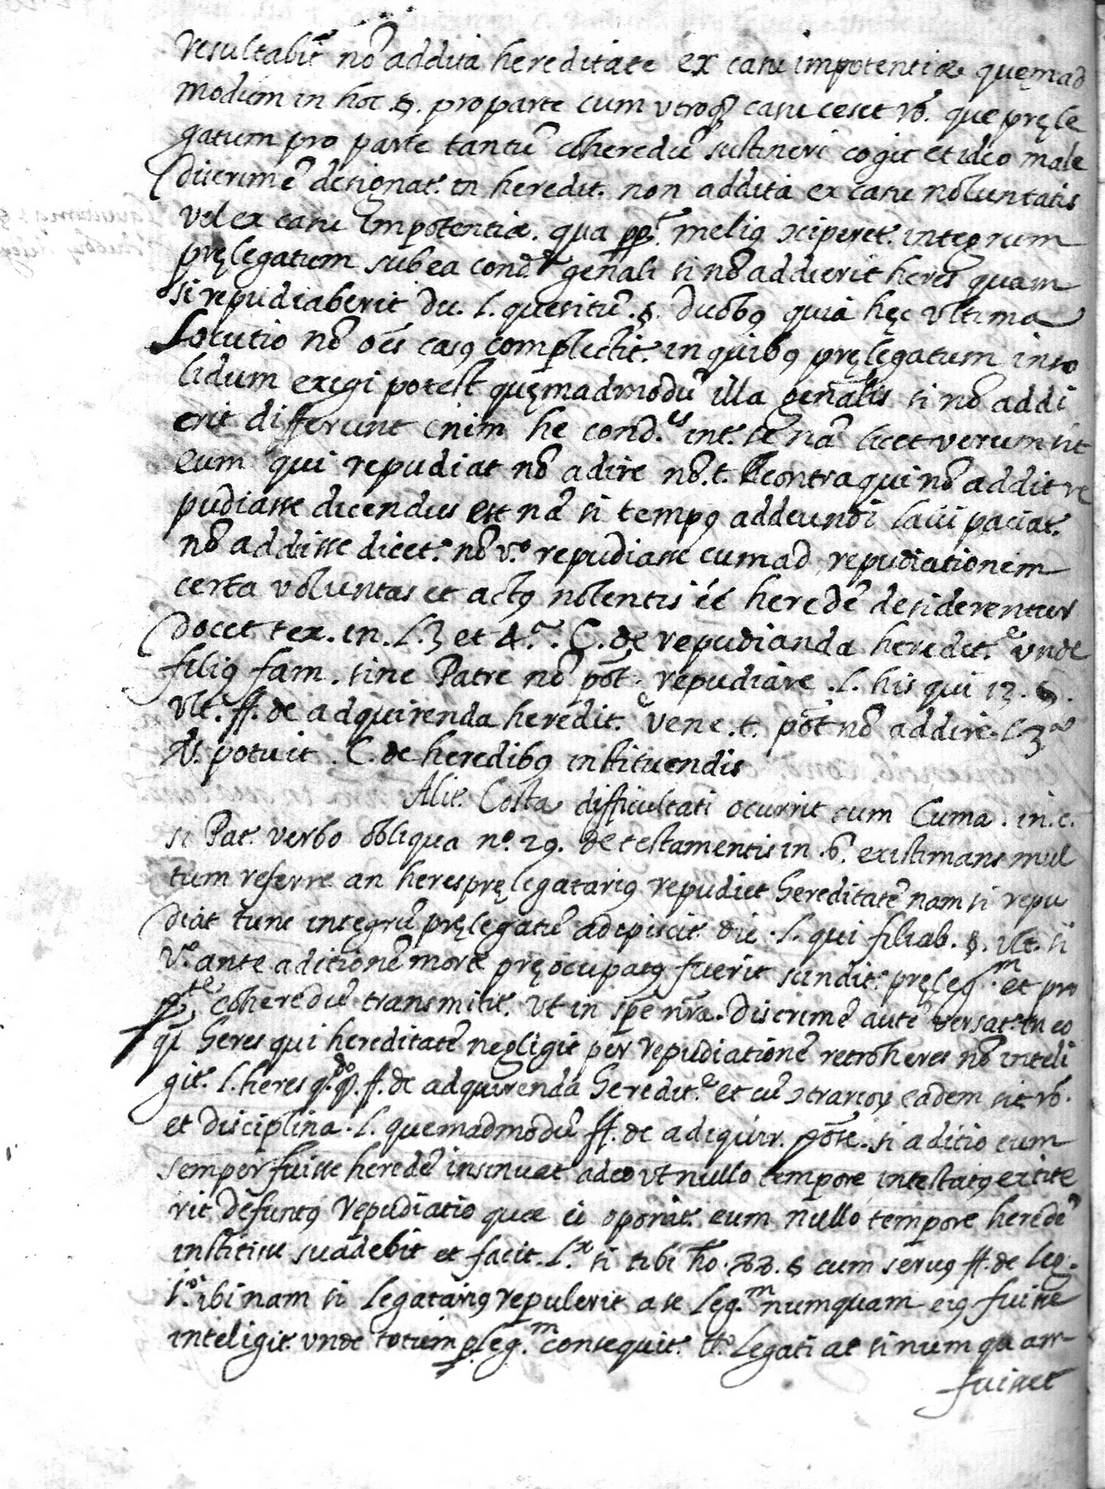 resultabit̃ nõ addita hereditate ex casu impotentiæ quęmad
modum in hoc §. pro parte cum utroq3 casu cesset rõ. que pręle
gatum pro parte tantũ coheredũ sustineri cogit et ideo male
discrimẽ designat. in heredit. non addita ex casu noluntatis
vel ex casu impotentiæ. qua pp. meliꝰ reciperet. integrum
pręlegatum sub ea condẽ geñali si nõ addierit heres quam
si repudiaberit du. l. queritũ. §. duobꝰ quia hęc ultima
Locutio nõ oẽs casꝰ complectit. in quibꝰ pręlegatum inso
lidum exegi potest quęmadmodũ illa geñalis si nõ addi
erit differunt enim he cond.es int. se nã licet verum sit
eum qui repudiat nõ adire nõ.t. econtra qui nõ addit re
pudiasse dicendus est nã si tempꝰ addeundi labi paciat.
nõ addisse dicet. nõ v.o repudiasse cum ad repudiationem
certa voluntas et actꝰ nolentis eé heredẽ desiderentur
docet tex. in. l.3 et 4.a. C. de repudianda heredit.e unde
filiꝰ fam. sine Patre nõ põt repudiare. l. his qui 12. §.
ult. ff. de adquirenda heredit.e vene.t. põt nõ addire. l.3
§. potuit. C. de heredibꝰ instituendis
Alit. Costa difficultati ocurrit cum Cuma. in.c.
si Pat. verbo obliqua no. 29. de testamentis in .6. existimans mul
tum referre an heres pręlegatariꝰ repudiet hereditatẽ nam si repu
diat tunc integrũ pręlegatũ adipiscit. dic. l. qui filiab. §. ult. si
v.o ante aditionẽ morte pręocupatꝰ fuerit scindit. pręleg.m et pro
p.te coheredũ transmitit. ut in spẽ nrã. Discrimẽ autẽ versat. in eo
qđ heres qui hereditatẽ negligit per repudiationẽ retro heres nõ inteli
git. l. heres qdo. ff. de adquirenda heredit.e et cũ contrarioꝝ eadem sit rõ.
et disciplina. l. quemadmodũ ff. de adquir. poss̃e. si aditio eum
semper fuisse heredẽ insinuat adeo ut nullo tempore intestatꝰ extite
rit defunctꝰ repudiatio quæ ei oponit. eum nullo tempore heredẽ
institisse suadebit et facit. l. si tibi ho. 22. § cum servꝰ ff. de leg.
1.o ibi nam si legatariꝰ repulerit a se leg.m numquam eiꝰ fuisse
inteligit. unde totum pleg.m consequit. tt.o legati at si numquam
fuisset